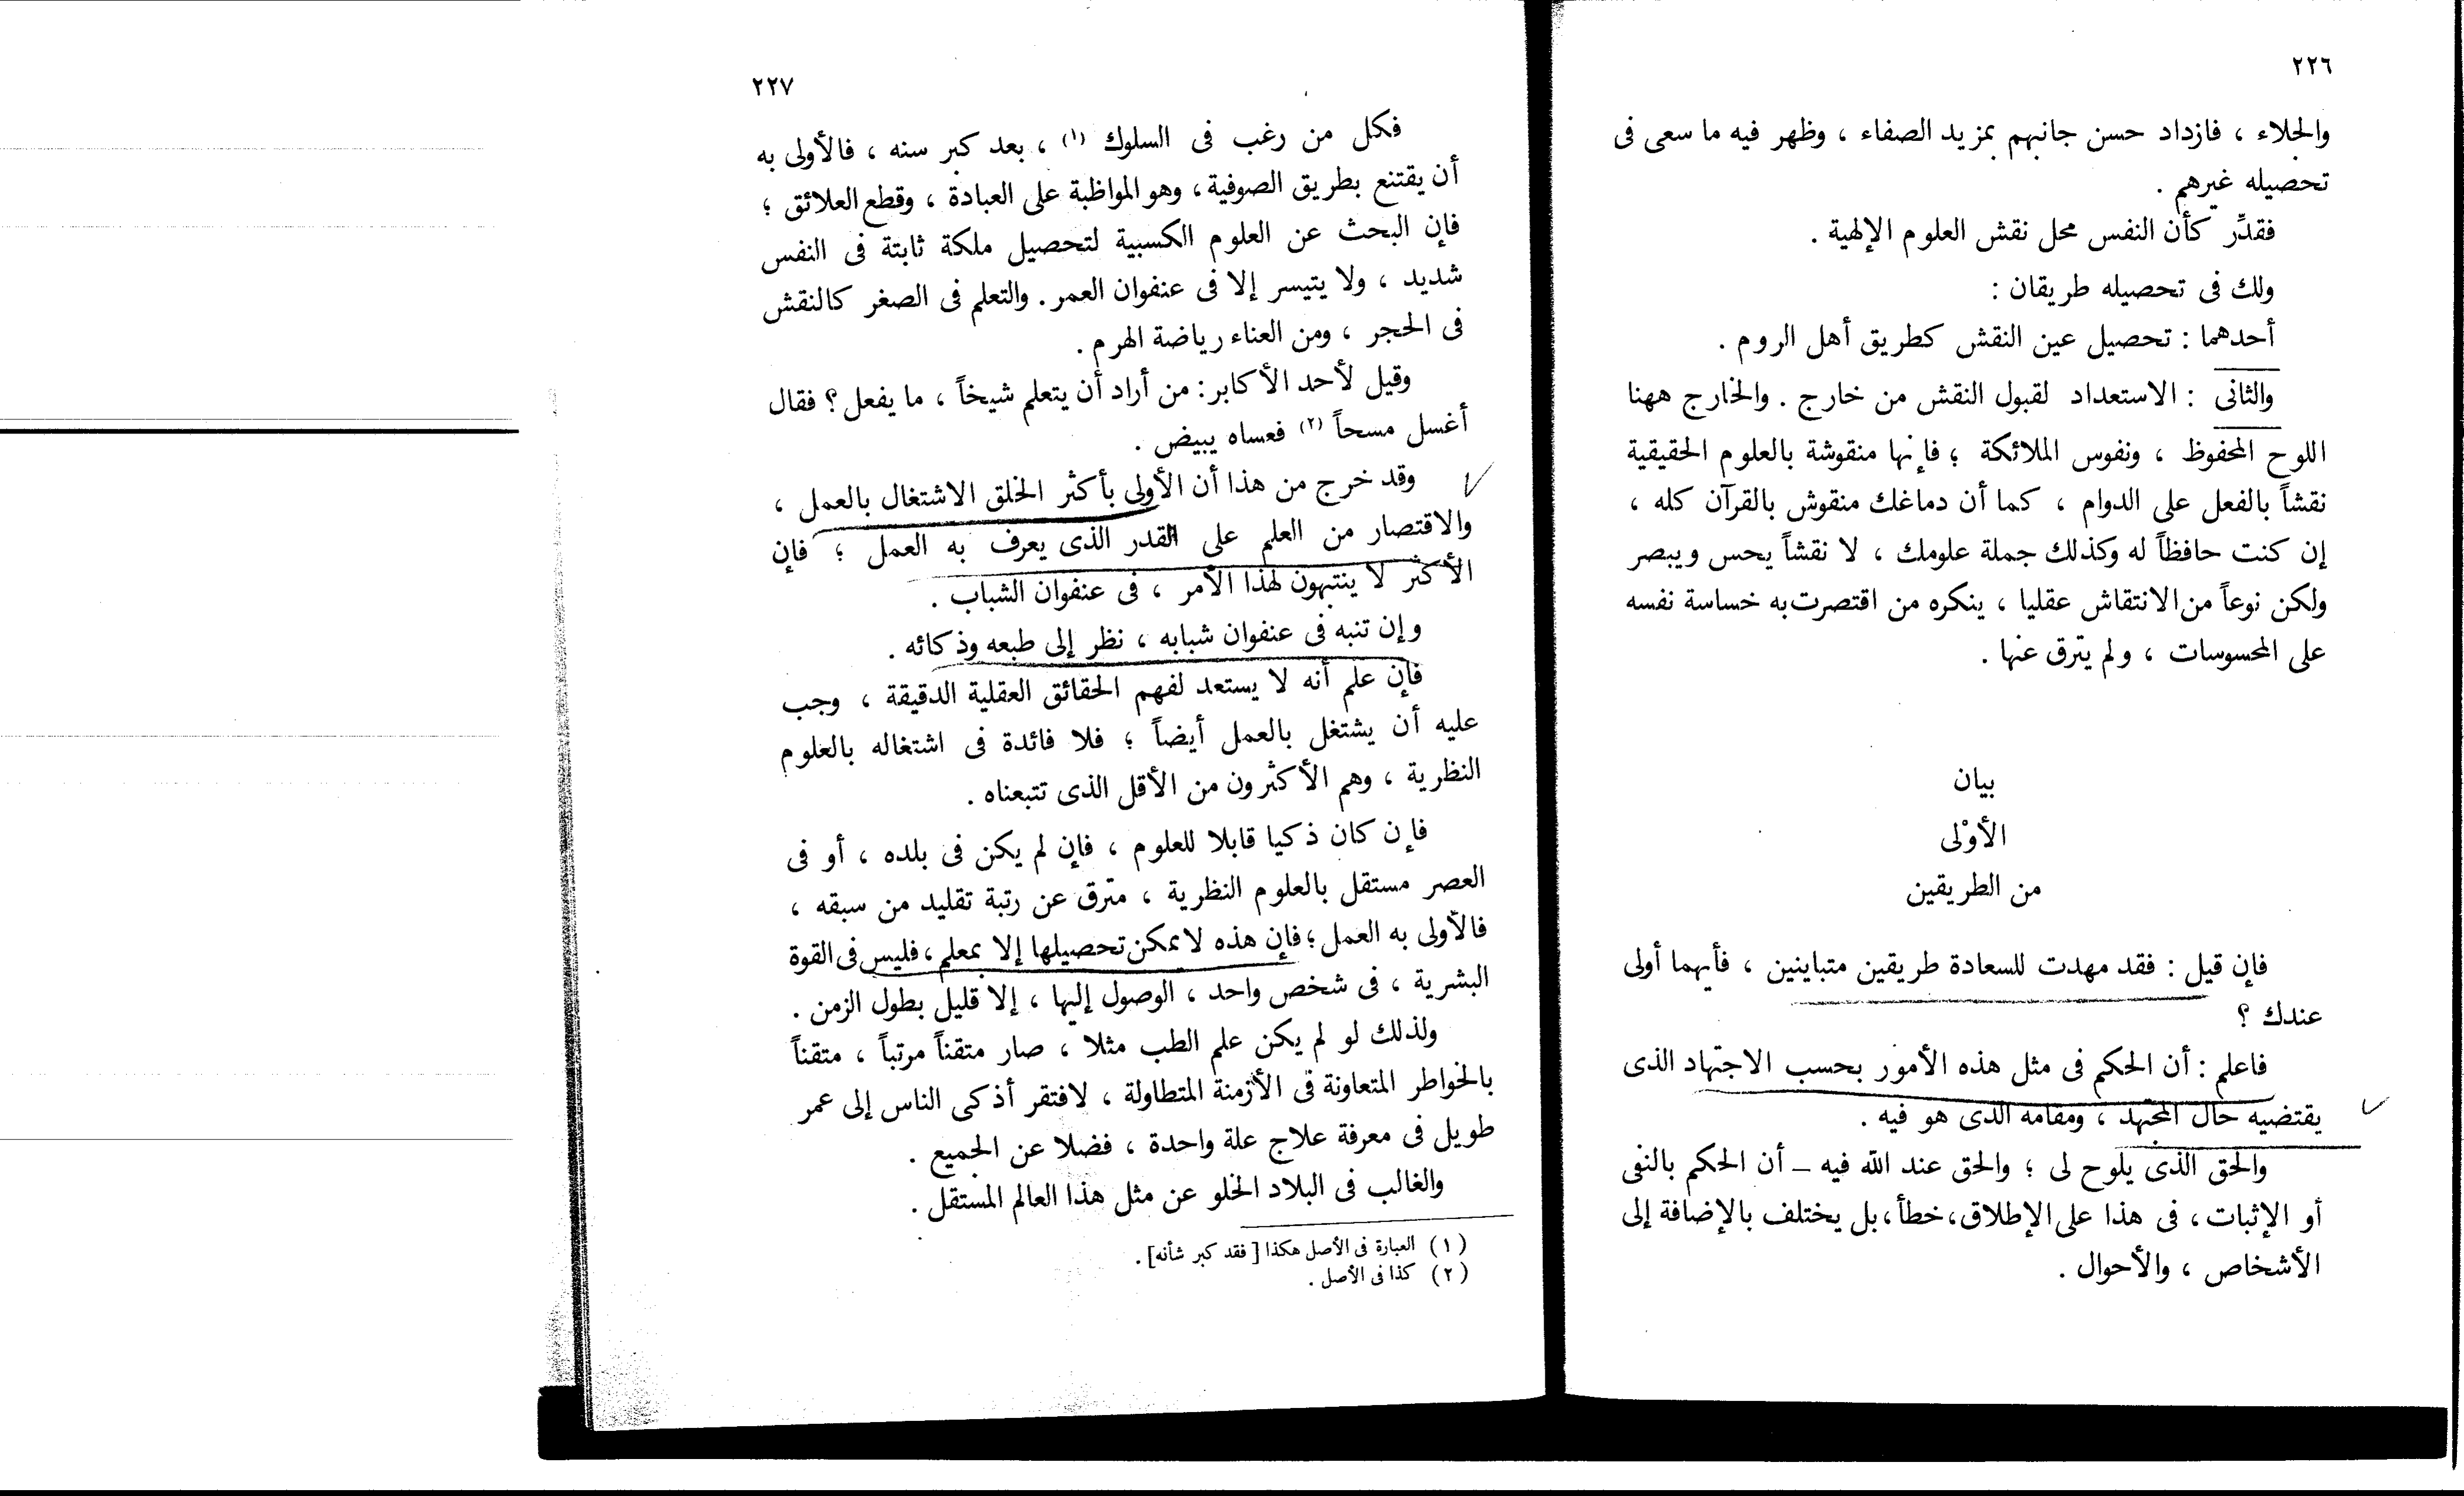 ٢٢٦
والجلاء ، فازداد حسن جانبهم بمزيد الصفاء ، وظهر فيه ما سعى فى
تحصيله غيرهم .
فقدِّر كأن النفس محل نقش العلوم الإلهية .
ولك فى تحصيله طريقان :
أحدهما : تحصيل عين النقش كطريق أهل الروم .
والثانى : الاستعداد لقبول النقش من خارج . والخارج ههنا
اللوح المحفوظ ، ونفوس الملائكة ؛ فإنها منقوشة بالعلوم الحقيقية
نقشاً بالفعل على الدوام ، كما أن دماغك منقوش بالقرآن كله ،
إن كنت حافظاً له وكذلك جملة علومك ، لا نقشاً يحس ويبصر
ولكن نوعاً من الانتقاش عقليا ، ينكره من اقتصرت به خساسة نفسه
على المحسوسات ، ولم يترق عنها .
بيان
الأوْلى
من الطريقين
فإن قيل : فقد مهدت للسعادة طريقين متباينين ، فأيهما أولى
عندك ؟
فاعلم : أن الحكم فى مثل هذه الأمور بحسب الاجتهاد الذى
يقتضيه حال المجتهد ، ومقامه الذى هو فيه .
والحق الذى يلوح لى ؛ والحق عند الله فيه – أن الحكم بالنفى
أو الإثبات ، فى هذا على الإطلاق ، خطأ ، بل يختلف بالإضافة إلى
الأشخاص ، والأحوال .
٢٢٧
فكل من رغب فى السلوك (١) ، بعد كبر سنه ، فالأولى به
أن يقتنع بطريق الصوفية ، وهو المواظبة على العبادة ، وقطع العلائق ؛
فإن البحث عن العلوم الكسبية لتحصيل ملكة ثابتة فى النفس
شديد ، ولا يتيسر إلا فى عنفوان العمر . والتعلم فى الصغر كالنقش
فى الحجر ، ومن العناء رياضة الهرم .
وقيل لأحد الأكابر : من أراد أن يتعلم شيخاً ، ما يفعل ؟ فقال
أغسل مسحاً (٢) فعساه يبيض .
وقد خرج من هذا أن الأولى بأكثر الخلق الاشتغال بالعمل ،
والاقتصار من العلم على القدر الذى يعرف به العمل ؛ فإن
الأكثر لا ينتبهون لهذا الأمر ، فى عنفوان الشباب .
وإن تنبه فى عنفوان شبابه ، نظر إلى طبعه وذكائه .
فإن علم أنه لا يستعد لفهم الحقائق العقلية الدقيقة ، وجب
عليه أن يشتغل بالعمل أيضاً ؛ فلا فائدة فى اشتغاله بالعلوم
النظرية ، وهم الأكثرون من الأقل الذى تتبعناه .
فإن كان ذكيا قابلا للعلوم ، فإن لم يكن فى بلده ، أو فى
العصر مستقل بالعلوم النظرية ، مترق عن رتبة تقليد من سبقه ،
فالأولى به العمل ؛ فإن هذه لا يمكن تحصيلها إلا بمعلم ، فليس فى القوة
البشرية ، فى شخص واحد ، الوصول إليها ، إلا قليل بطول الزمن .
ولذلك لو لم يكن علم الطب مثلا ، صار متقناً مرتباً ، متقناً
بالخواطر المتعاونة فى الأزمنة المتطاولة ، لافتقر أذكى الناس إلى عمر
طويل فى معرفة علاج علة واحدة ، فضلا عن الجميع .
والغالب فى البلاد الخلو عن مثل هذا العالم المستقل .
(١) العبارة فى الأصل هكذا [ فقد كبر شأنه] .
(٢) كذا فى الأصل .